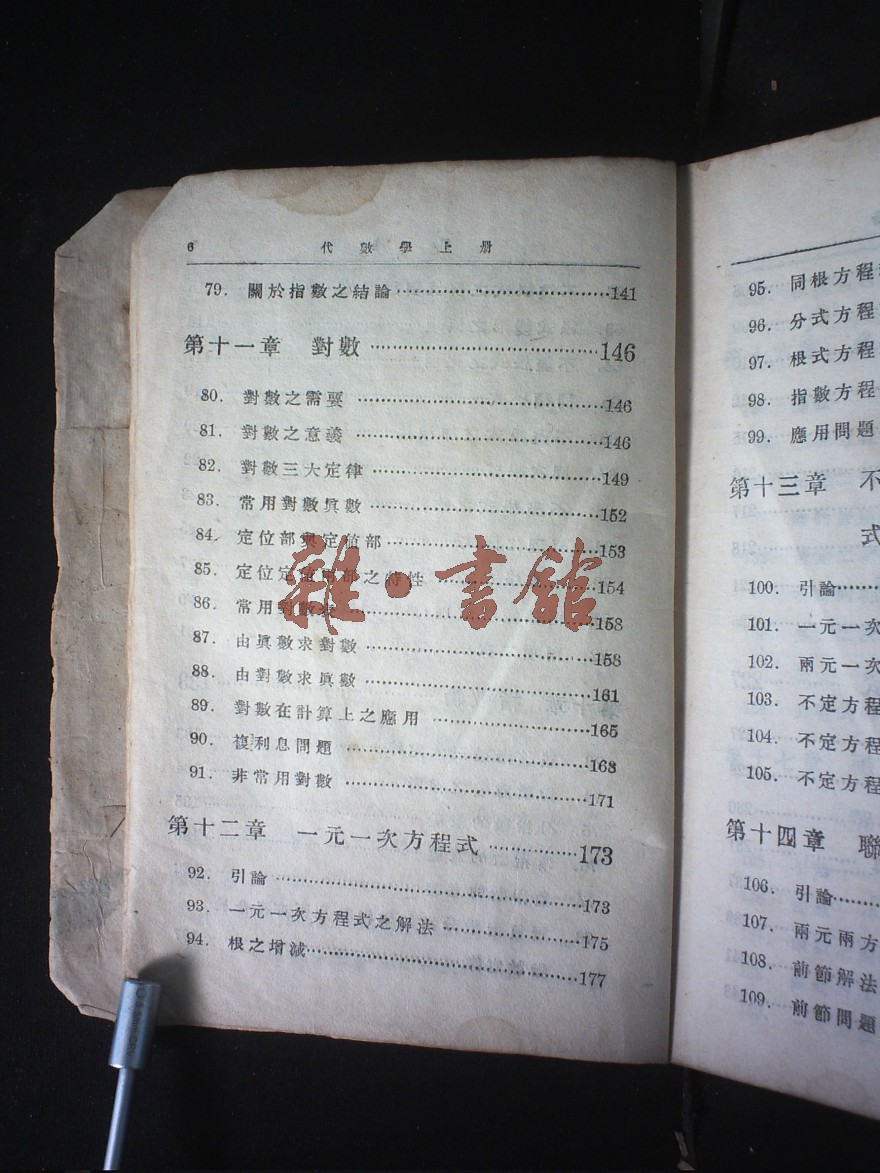 6 代數學上册
79. 關於指數之結論 141
第十一章 對數 146
80. 對數之需要 146
81. 對數之意義 146
82. 對數三大定律 149
83. 常用對數眞數 152
84. 定位部與定值部 153
85. 定位定值兩部之特性 154
86. 常用對數表 158
87. 由眞數求對數 158
88. 由對數求眞數 161
89. 對數在計算上之應用 165
90. 複利息問題 168
91. 非常用對數 171
第十二章 一元一次方程式 173
92. 引論 173
93. 一元一次方程式之解法 175
94. 根之增減 177
雜·書館
95. 同根方程
96. 分式方程
97. 根式方程
98. 指數方程
99. 應用問題
第十三章 不
式
100. 引論
101. 一元一次
102. 兩元一次
103. 不定方程
104. 不定方程
105. 不定方程
第十四章 聯
106. 引論
107. 兩元兩方
108. 前節解法
109. 前節問題